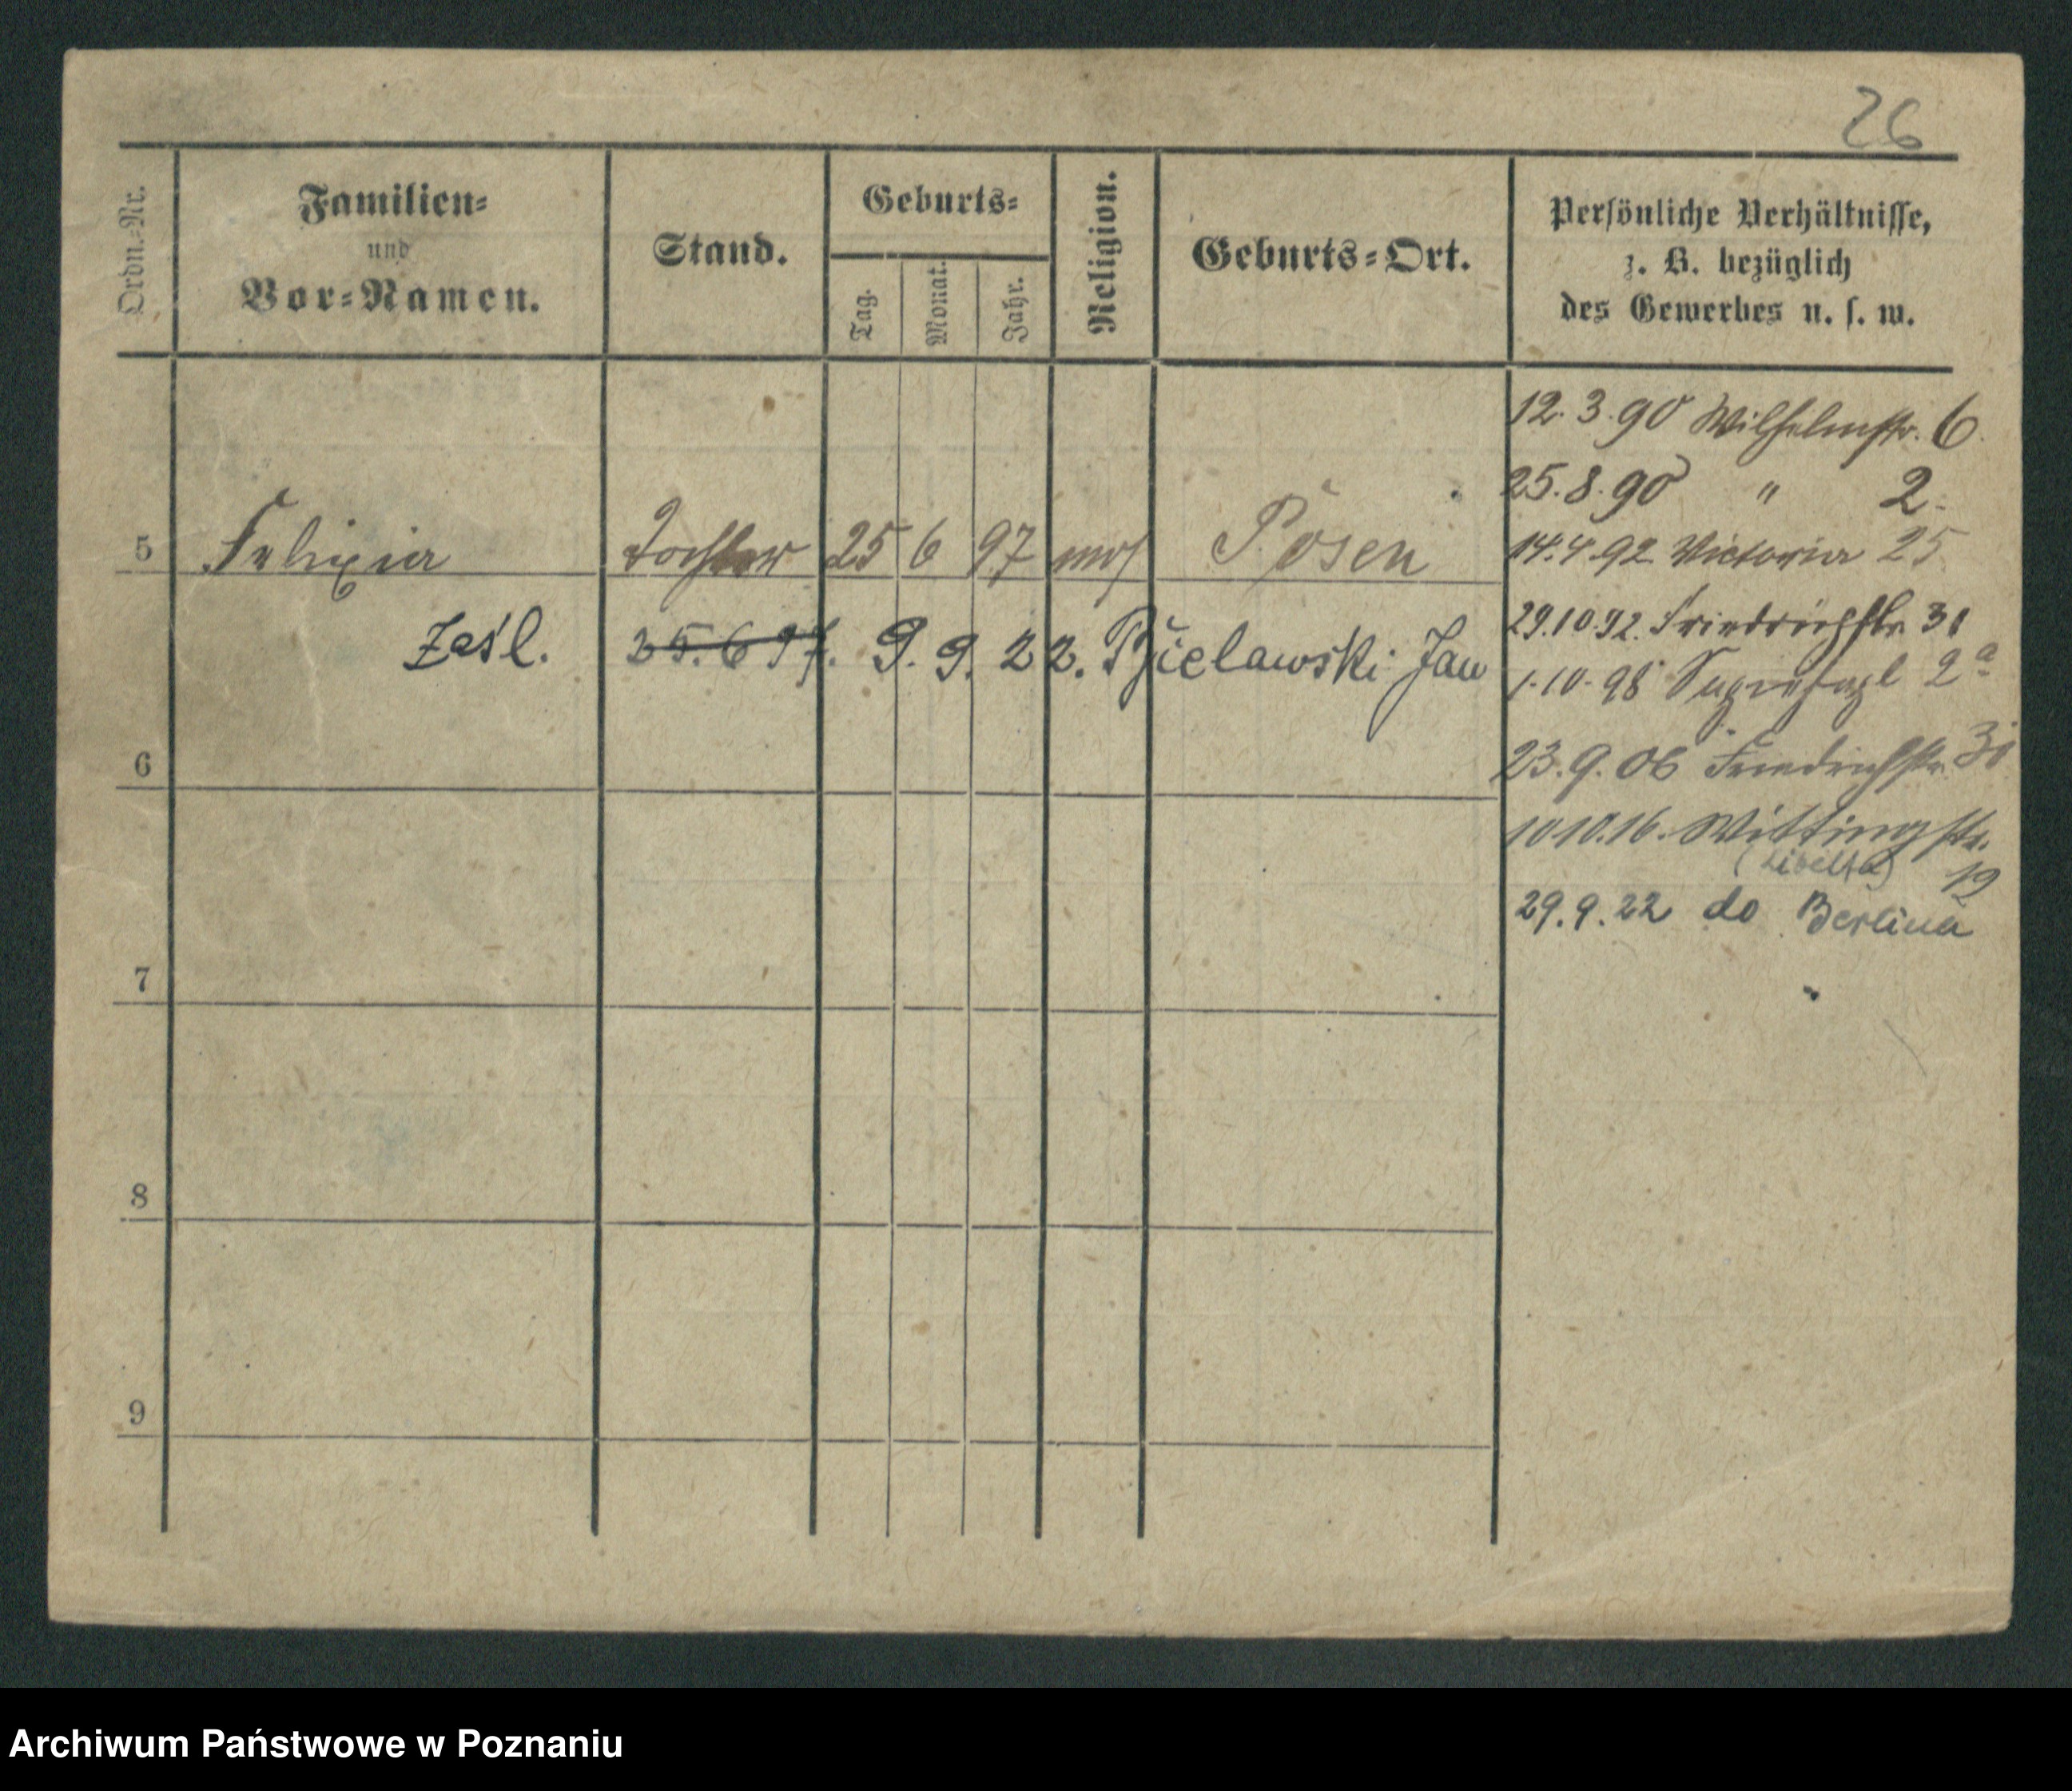 26
Ordn.=Nr.
Familien=
und
Vor=Namen.
Stand.
Geburts=
Tag.
Monat.
Jahr.
Religion.
Geburts=Ort.
Persönliche Verhältnisse,
z. B. bezüglich
des Gewerbes u. s. w.
12.3.90 Wilhelmstr. 6.
25.8.90 " 2.
14.4.92 Victoria 25
5 Felixia Tochter 25 6 97 mos Posen
29.10.92. Friedrichstr. 31
Zaśl. 25.6 97. 9. 9. 22. Bielawski Jan
1.10.98 2a
6
23.9.06 Friedrichstr. 31
10.10.16. Wittingstr.
(Libelta) 19
29.9.22 do Berlina
7
8
9
Archiwum Państwowe w Poznaniu